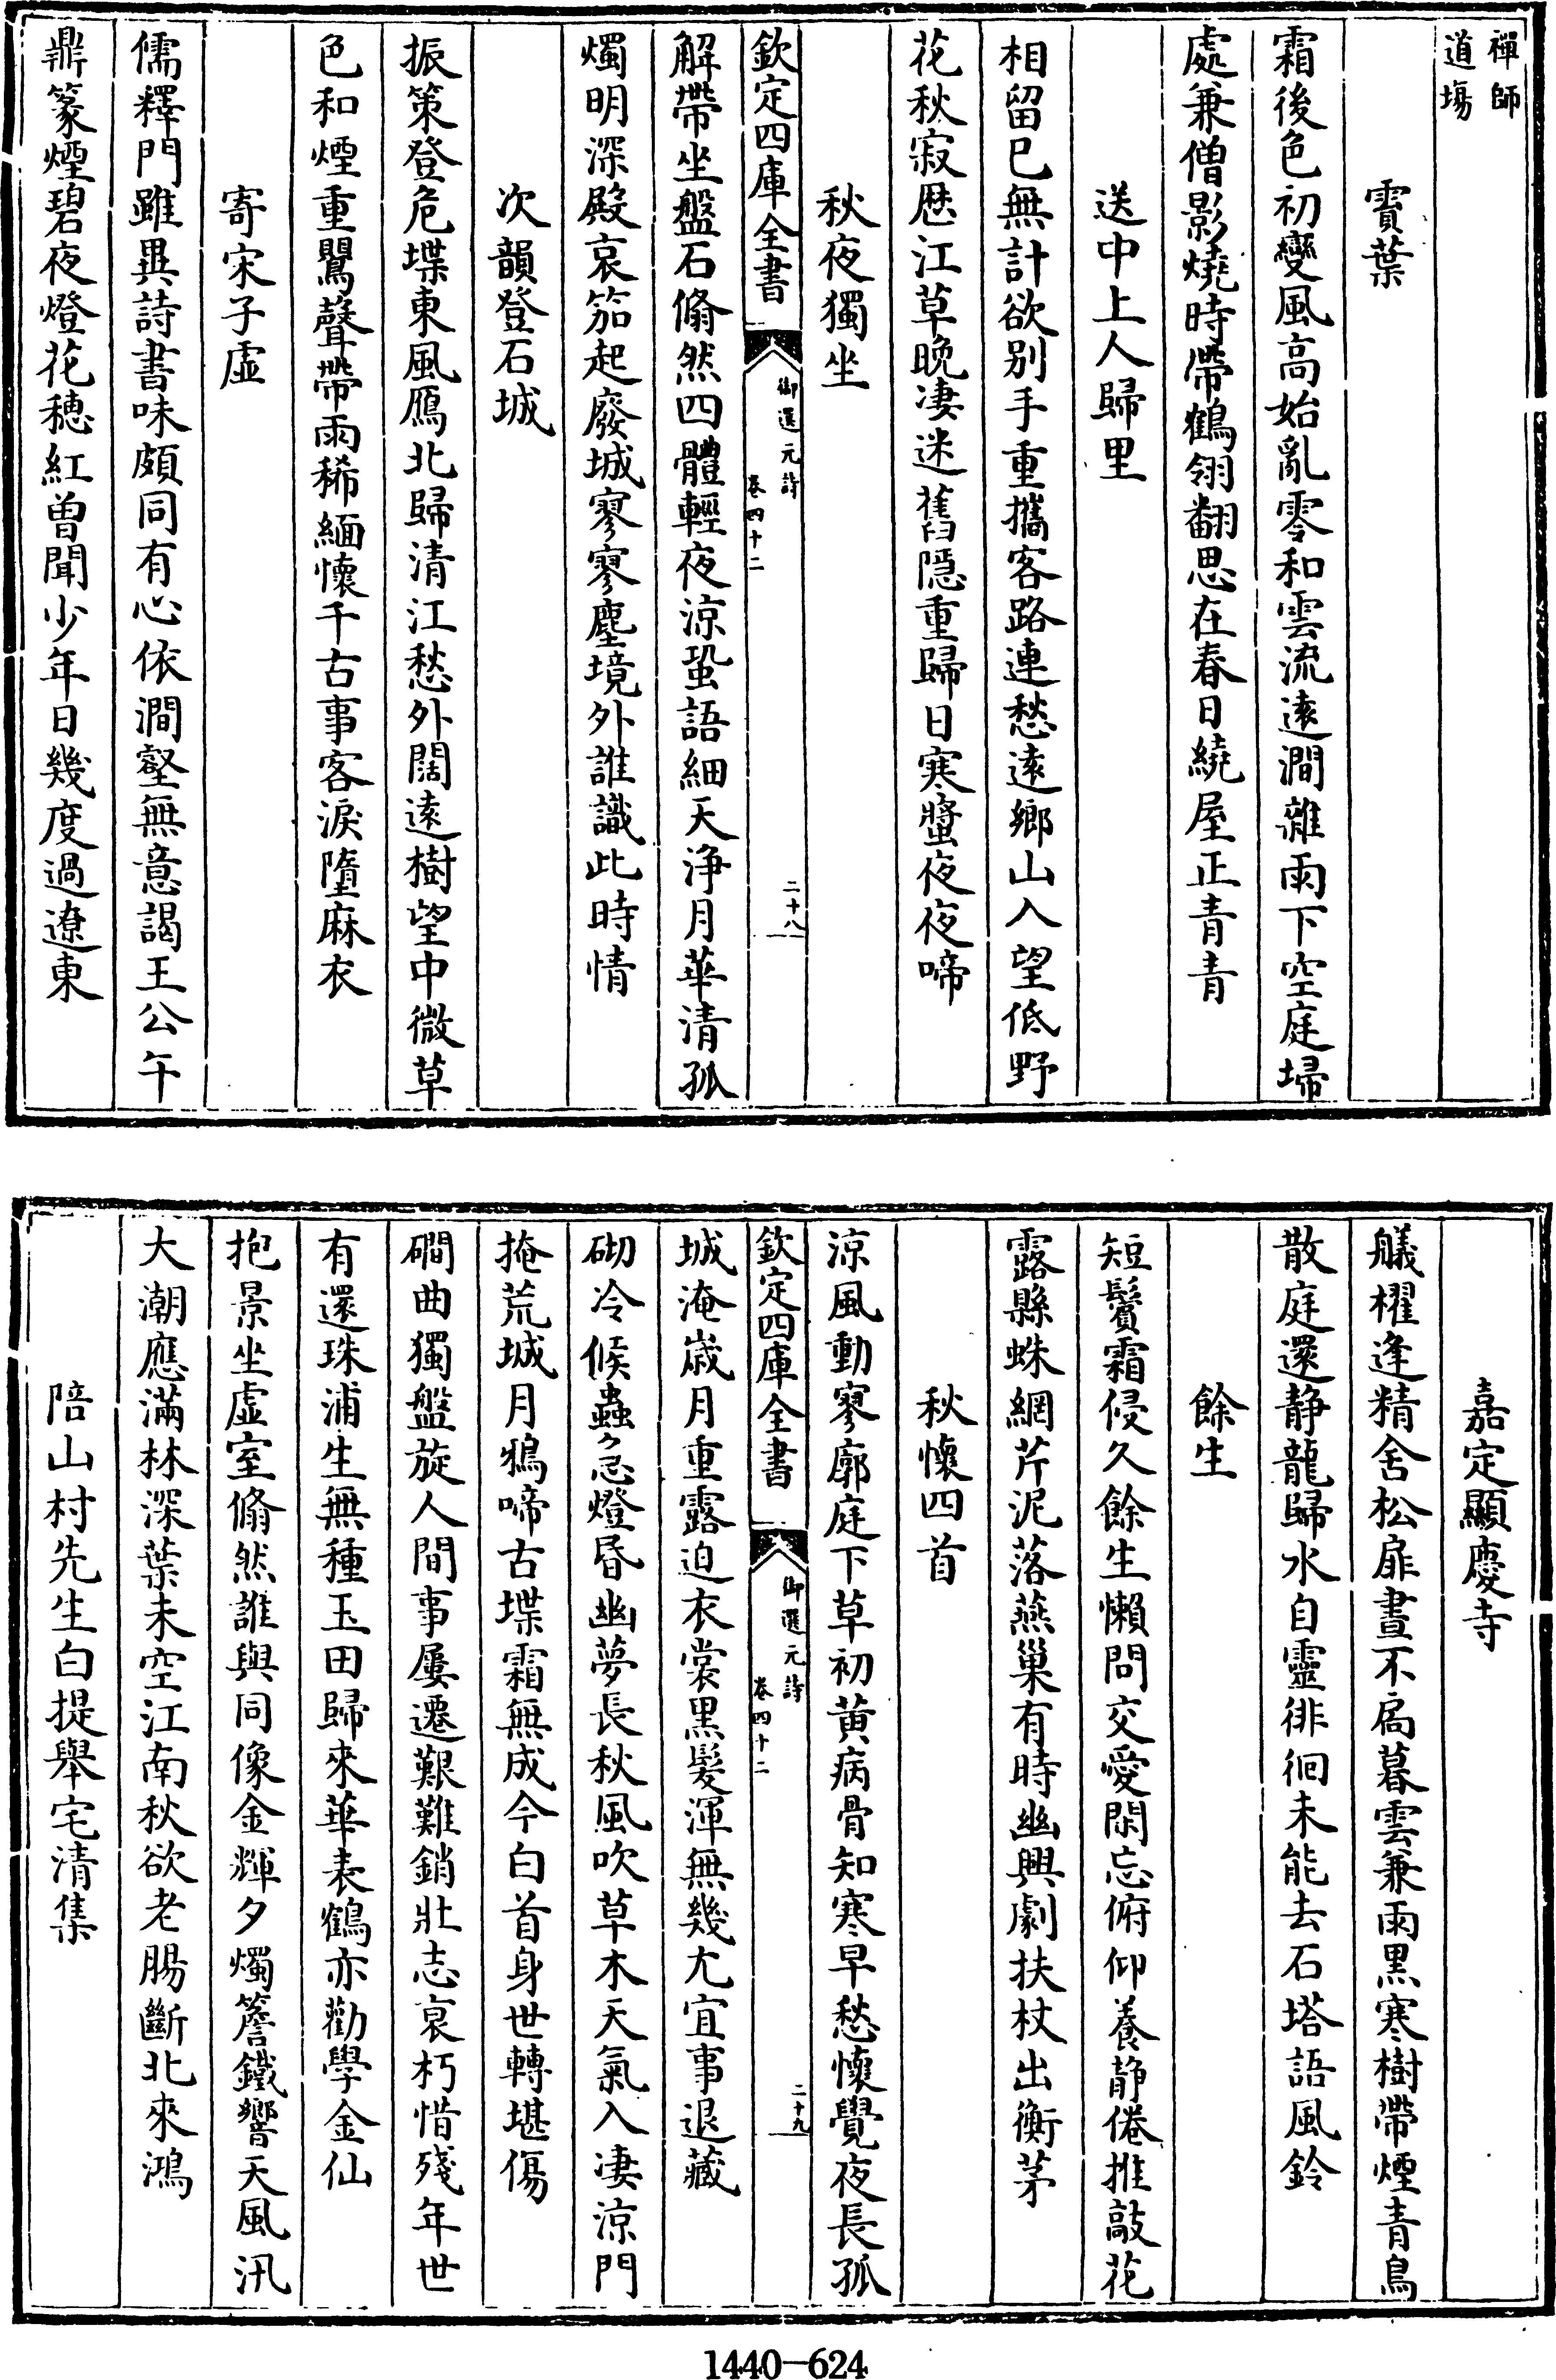 禪師
道場
霣葉
霜後色初變風高始亂零和雲流遠澗雜雨下空庭埽
處兼僧影燒時帶鶴翎翻思在春日繞屋正青青
送中上人歸里
相留已無計欲别手重攜客路連愁遠鄉山入望低野
花秋寂歴江草晚凄迷舊隱重歸日寒螿夜夜啼
秋夜獨坐
欽定四庫全書
御選元詩
卷四十二
二十八
解帶坐盤石翛然四體輕夜涼蛩語細天浄月華清孤
燭明深殿哀笳起廢城寥寥塵境外誰識此時情
次韻登石城
振策登危堞東風鴈北歸清江愁外闊遠樹望中微草
色和煙重鸎聲帶雨稀緬懷千古事客淚墮麻衣
寄宋子虛
儒釋門雖異詩書味頗同有心依澗壑無意謁王公午
鼎篆煙碧夜燈花穗紅曾聞少年日幾度過遼東
嘉定顯慶寺
艤櫂逢精舍松扉晝不扃暮雲兼雨黒寒樹帶煙青鳥
散庭還静龍歸水自靈徘徊未能去石塔語風鈴
餘生
短鬢霜侵久餘生懶問交愛閑忘俯仰養静倦推敲花
露縣蛛網芹泥落燕巢有時幽興劇扶杖出衡茅
秋懷四首
涼風動寥廓庭下草初黄病骨知寒早愁懷覺夜長孤
欽定四庫全書
御選元詩
卷四十二
二十九
城淹歳月重露迫衣裳黒髪渾無幾尤宜事退藏
砌冷候蟲急燈昏幽夢長秋風吹草木天氣入凄涼門
掩荒城月鴉啼古堞霜無成今白首身世轉堪傷
磵曲獨盤旋人間事屢遷艱難銷壯志哀朽惜殘年世
有還珠浦生無種玉田歸來華表鶴亦勸學金仙
抱景坐虛室翛然誰與同像金輝夕燭簷鐵響天風汛
大潮應滿林深葉未空江南秋欲老腸斷北來鴻
陪山村先生白提舉宅清集
1440-624